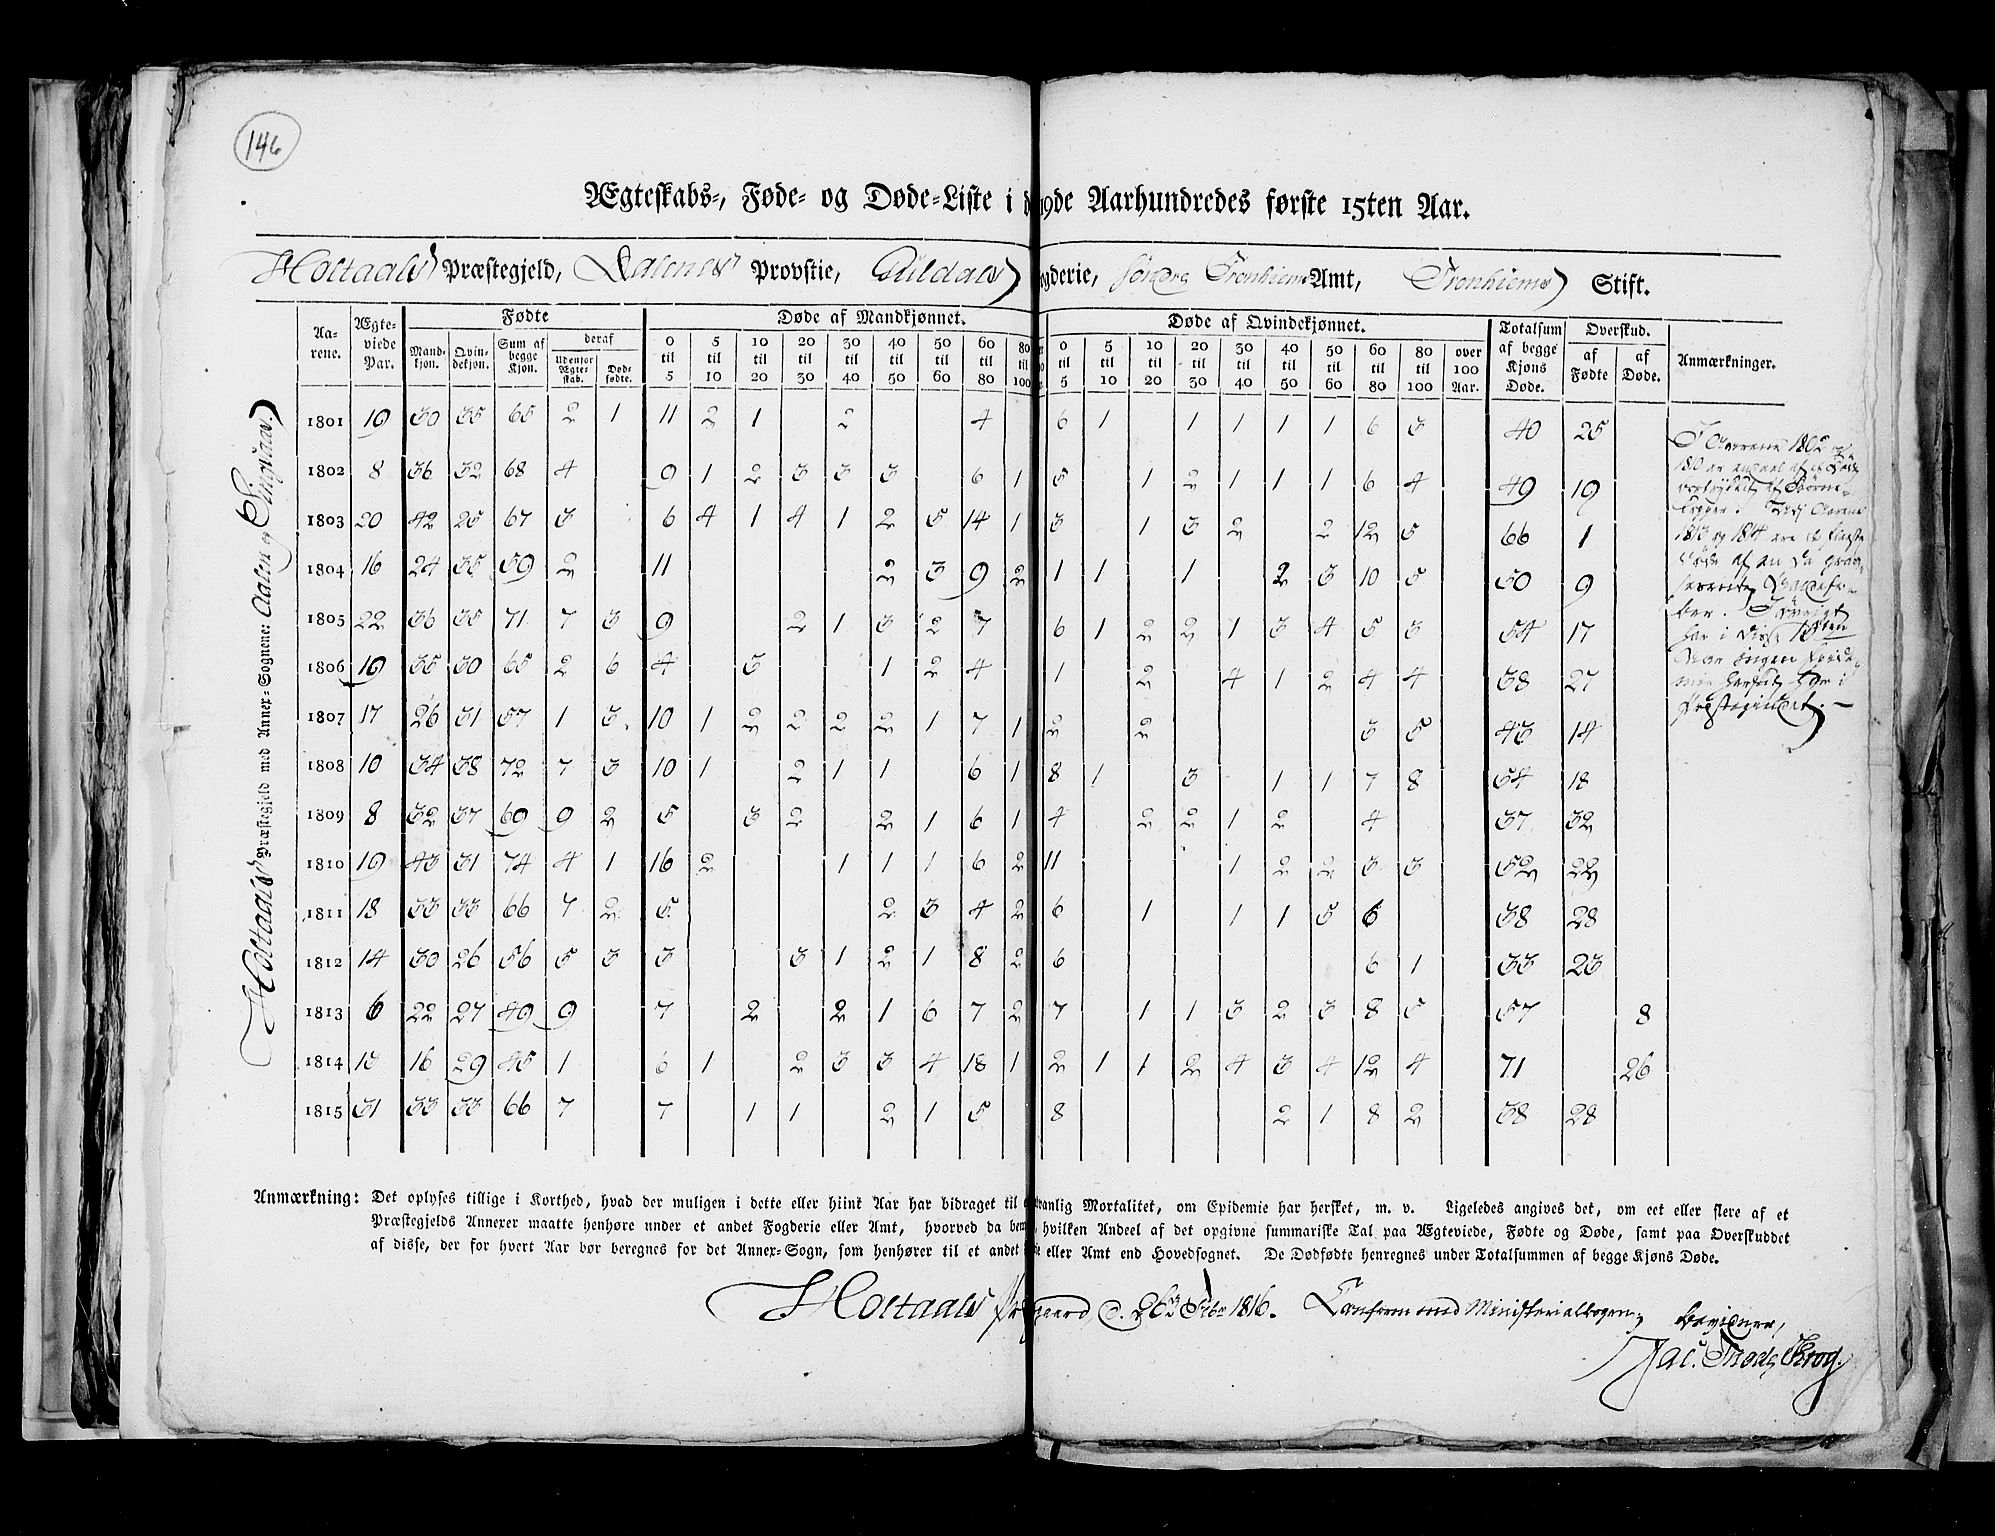 146
Ægteskabs-, Føde- og Døde-Liste i d 19de Aarhundredes første 15ten Aar.
Holtaals Præstegjeld, Dalenes Provstie, Guldals gderie, søndre Tronhiems Amt, Tronhiems Stift.
Holtaals Præstegjeld med Annex-Sognene: Aalen og Singsaas.
Aarene. Ægteviede Par. Fødte Mandkjøn. Qvindekjøn. Sum af begge Kjøn. deraf Udenfor Ægteskab. Dødfødte. Døde af Mandkjønnet. 0 til 5 5 til 10 10 til 20 20 til 30 30 til 40 40 til 50 50 til 60 60 til 80 80 til 100 Døde af Qvindekjønnet. 0 til 5 5 til 10 10 til 20 20 til 30 30 til 40 40 til 50 50 til 60 60 til 80 80 til 100 over 100 Aar. Totalsum af begge Kjøns Døde. Overskud. af Fødte af Døde. Anmærkninger.
1801 19 30 35 65 2 1 11 2 1 2 4 6 1 1 1 1 1 6 3 40 25
1802 8 36 32 68 4 9 1 2 3 3 3 6 1 5 1 2 1 1 1 6 4 49 19
1803 20 42 25 67 3 6 4 1 4 1 2 5 14 1 3 1 3 2 2 12 5 66 1
1804 16 24 35 59 2 11 2 3 9 2 1 1 1 2 3 10 5 50 9
1805 22 36 35 71 7 3 9 2 1 3 2 7 6 1 2 2 1 3 4 5 3 54 17
1806 19 35 30 65 2 6 4 3 1 2 4 1 2 4 1 2 4 4 38 27
1807 17 26 31 57 1 3 10 1 2 2 2 2 1 7 1 2 2 3 5 43 14
1808 10 34 38 72 7 3 10 1 2 1 1 6 1 8 1 3 1 1 7 8 54 18
1809 8 32 37 69 9 2 5 3 2 2 1 6 1 4 2 2 1 2 4 37 32
1810 19 43 31 74 4 1 16 2 1 1 1 6 2 11 1 2 2 3 3 52 22
1811 18 33 33 66 7 2 5 2 3 4 2 6 1 1 1 5 6 38 28
1812 14 30 26 56 5 3 3 3 1 2 1 8 2 6 6 1 33 23
1813 6 22 27 49 9 7 2 2 1 6 7 2 7 1 1 3 2 3 8 5 57 8
1814 13 16 29 45 1 6 1 2 3 3 4 18 1 2 1 1 2 4 3 4 12 4 71 26
1815 31 33 33 66 7 7 1 1 2 1 5 8 2 1 8 2 38 28
I Aarene 1802 og
1810 er endeel af de
af Børne-
kopper. Udi Aarene
1813 og 1814 ere de fleeste
døde af en da gras-
serende
ber. Iøvrigt
har i disse 15ten
Aar ingen Epide-
mie hersket her i
Præstegieldet. —
Anmærkning: Det oplyses tillige i Korthed, hvad der muligen i dette eller hiint Aar har bidraget til vanlig Mortalitet, om Epidemie har hersket, m. v. Ligeledes angives det, om eet eller flere af et
Præstegjelds Annexer maatte henhøre under et andet Fogderie eller Amt, hvorved da bem hvilken Andeel af det opgivne summariske Tal paa Ægteviede, Fødte og Døde, samt paa Overskuddet
af disse, der for hvert Aar bør beregnes for det Annex-Sogn, som henhører til et andet eller Amt end Hovedsognet. De Dødfødte henregnes under Totalsummen af begge Kjøns Døde.
Holtaals gaard, d. 26de 1816. Conform med Ministerialbogen, bevidner,
Jac. Krog.